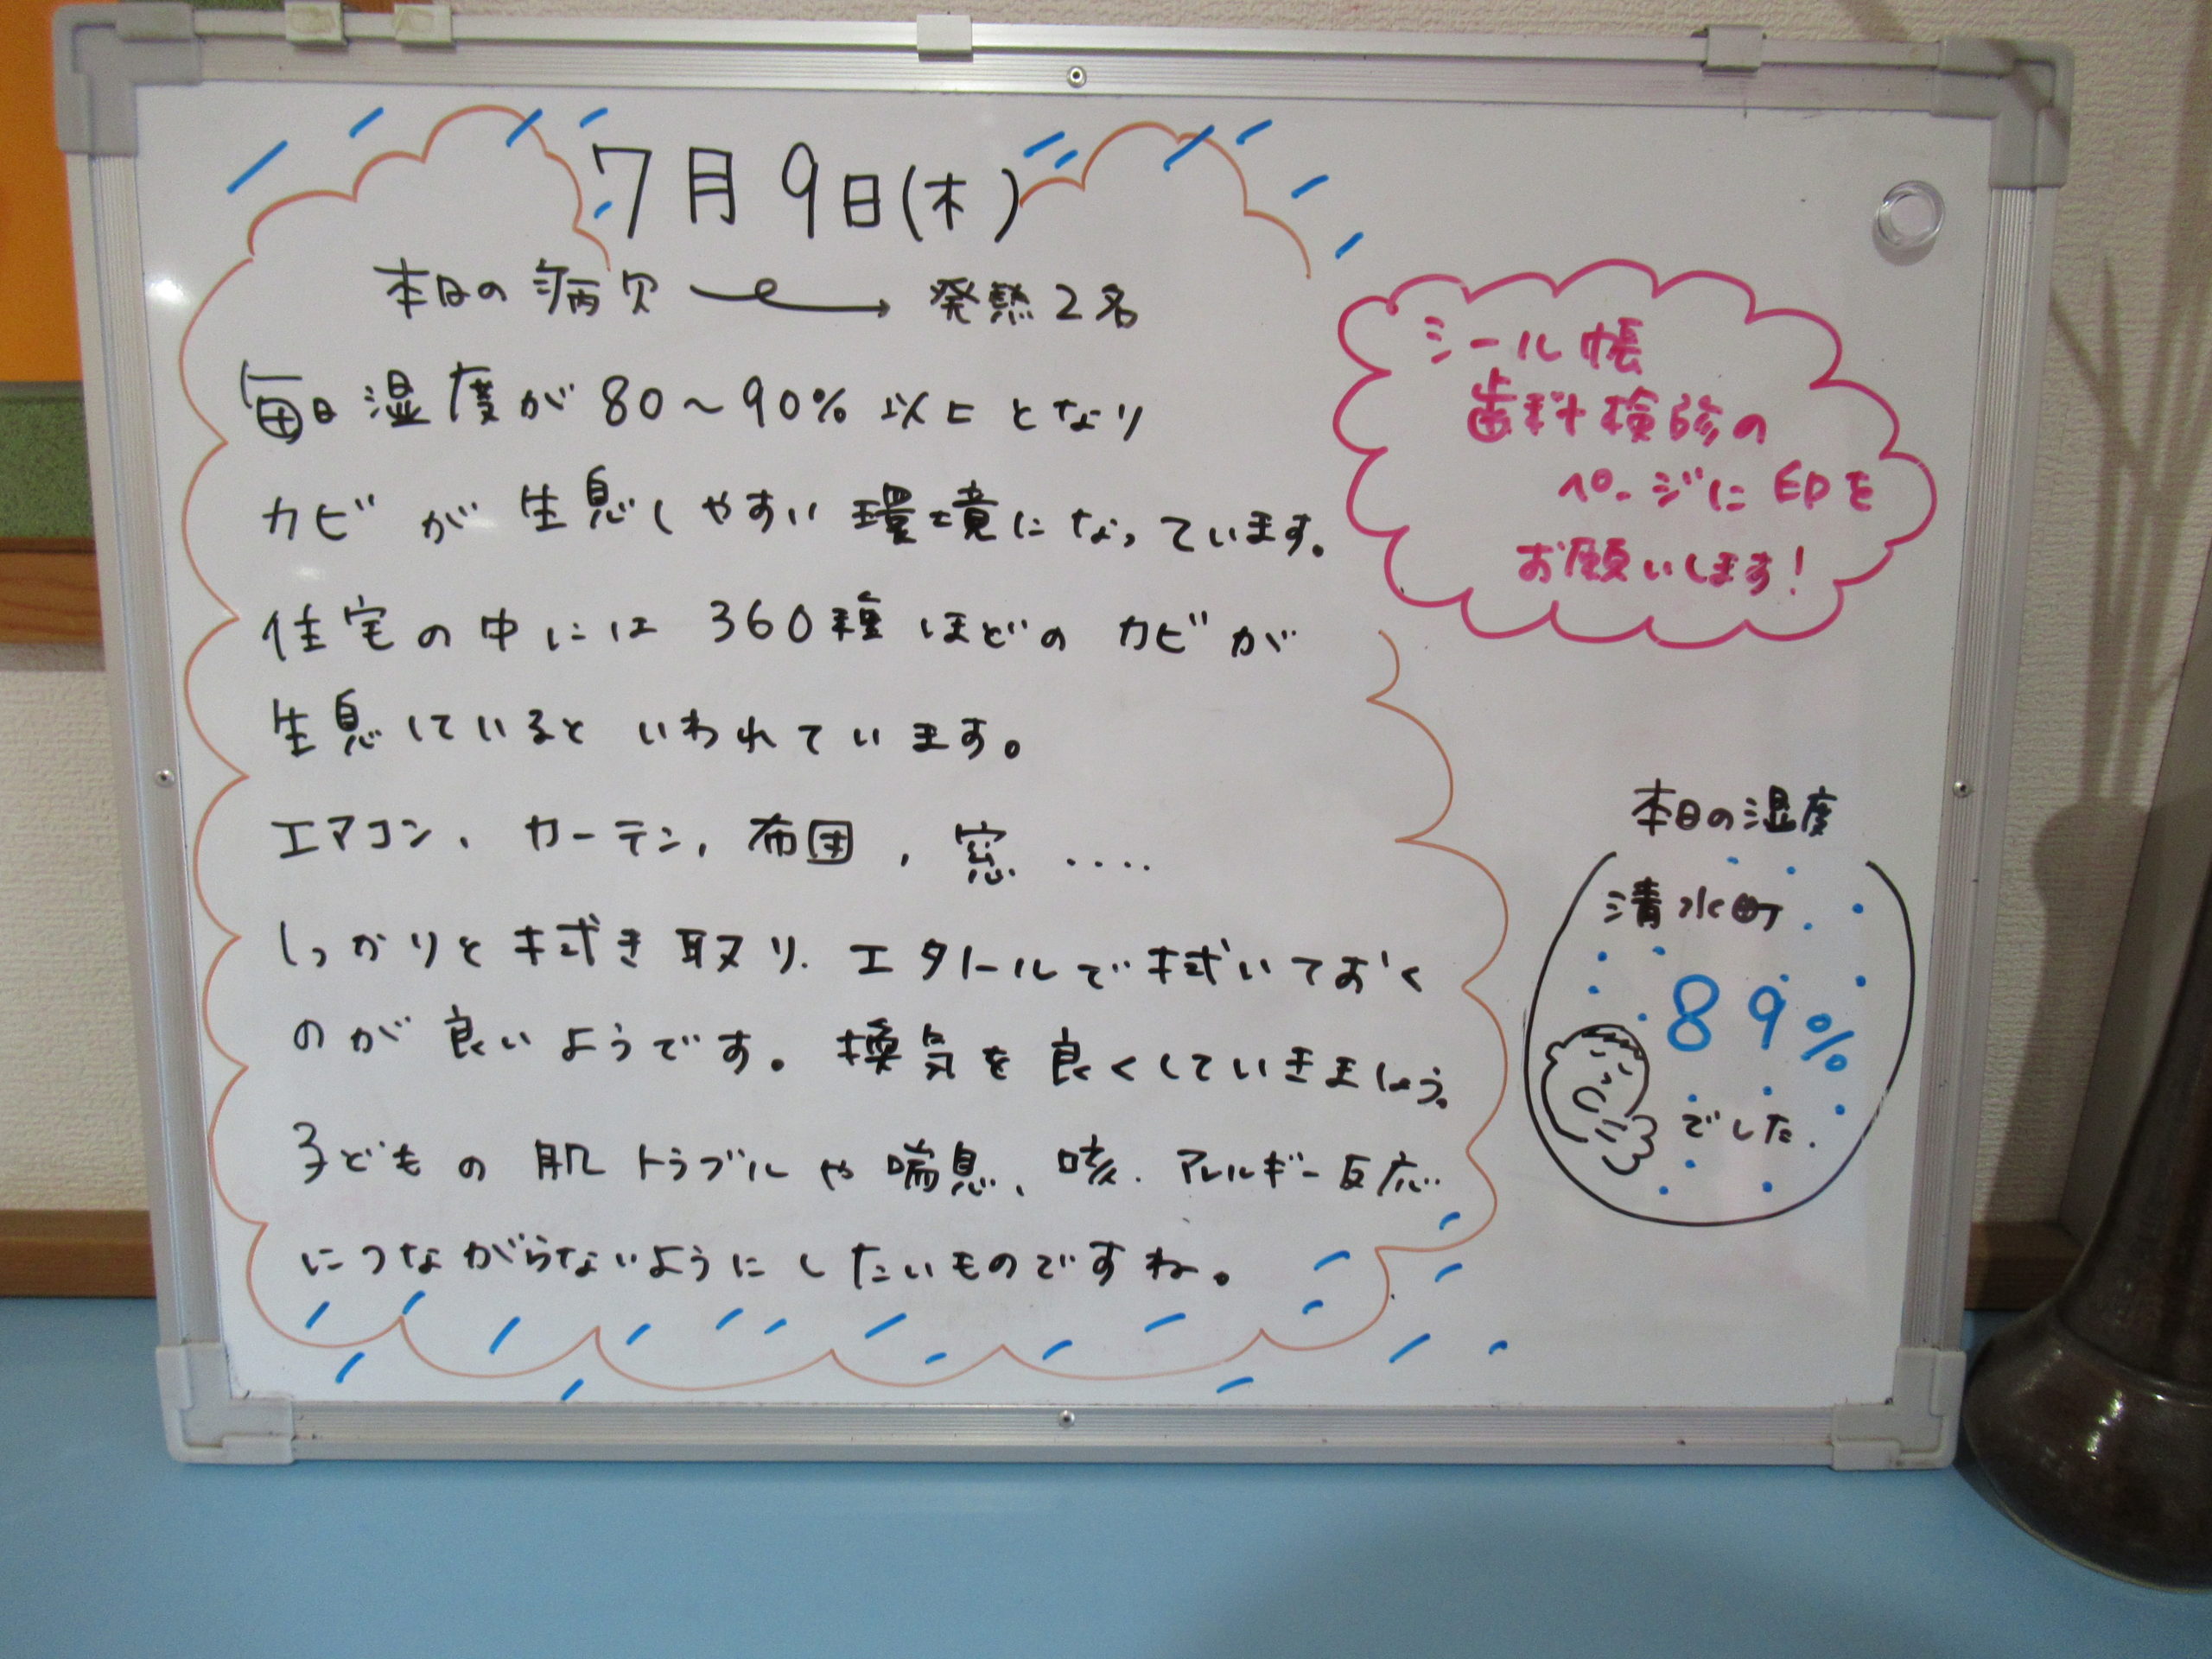 7月9日(木)
本日の病欠 → 発熱2名
毎日湿度が80～90%以上となり
カビが生息しやすい環境になっています。
住宅の中には360種ほどのカビが
生息しているといわれています。
エアコン、カーテン、布団、窓‥‥
しっかりと拭き取り、エタノールで拭いておく
のが良いようです。換気を良くしていきましょう。
子どもの肌トラブルや喘息、咳、アレルギー反応
につながらないようにしたいものですね。
シール帳
歯科検診の
ページに印を
お願いします!
本日の湿度
清水町
89%
でした.